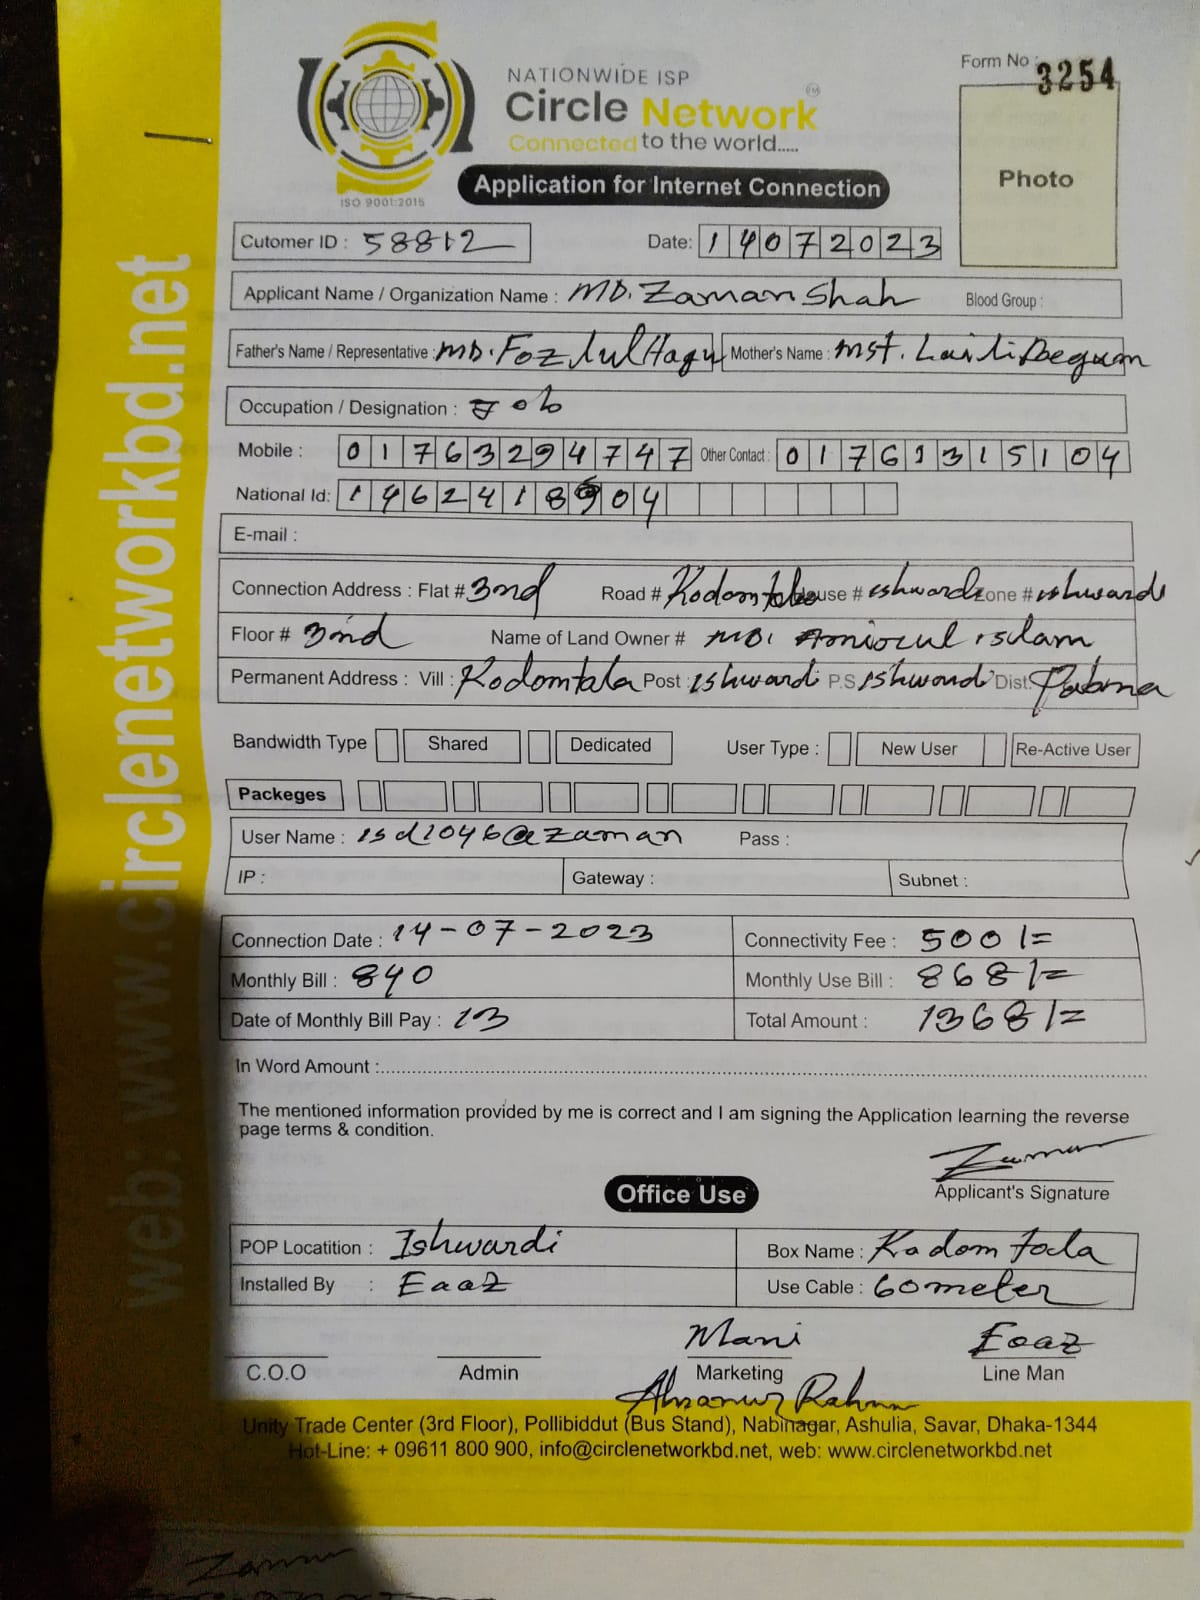 Form No : 3254
NATIONWIDE ISP
Circle Network
Connected to the world.....
ISO 9001:2015
Application for Internet Connection
Photo
web: www.circlenetworkbd.net
Cutomer ID : 58812 Date: 14072023
Applicant Name / Organization Name : MD. Zaman Shah Blood Group :
Father's Name / Representative : MD. Fozlul Haqu Mother's Name : Mst. Begum
Occupation / Designation : Job
Mobile : 01763294747 Other Contact : 01761315104
National Id: 1462418904
E-mail :
Connection Address : Flat # 3nd Road # Kodomtola House # ishwardi Zone # ishwardi
Floor # 3nd Name of Land Owner # MD. islam
Permanent Address : Vill : Kodomtala Post : ishwardi P.S ishwardi Dist: Pabna
Bandwidth Type Shared Dedicated User Type : New User Re-Active User
Packeges
User Name : isd1046@zaman Pass :
IP : Gateway : Subnet :
Connection Date : 14-07-2023 Connectivity Fee : 500/=
Monthly Bill : 840 Monthly Use Bill : 868/=
Date of Monthly Bill Pay : 13 Total Amount : 1368/=
In Word Amount :
The mentioned information provided by me is correct and I am signing the Application learning the reverse
page terms & condition.
Zaman
Applicant's Signature
Office Use
POP Locatition : Ishwardi Box Name : Kadom tola
Installed By : Eaaz Use Cable : 60 meter
Mani Eaaz
C.O.O Admin Marketing Line Man
Ahsanur Rahman
Unity Trade Center (3rd Floor), Pollibiddut (Bus Stand), Nabinagar, Ashulia, Savar, Dhaka-1344
Hot-Line: + 09611 800 900, info@circlenetworkbd.net, web: www.circlenetworkbd.net
Zaman